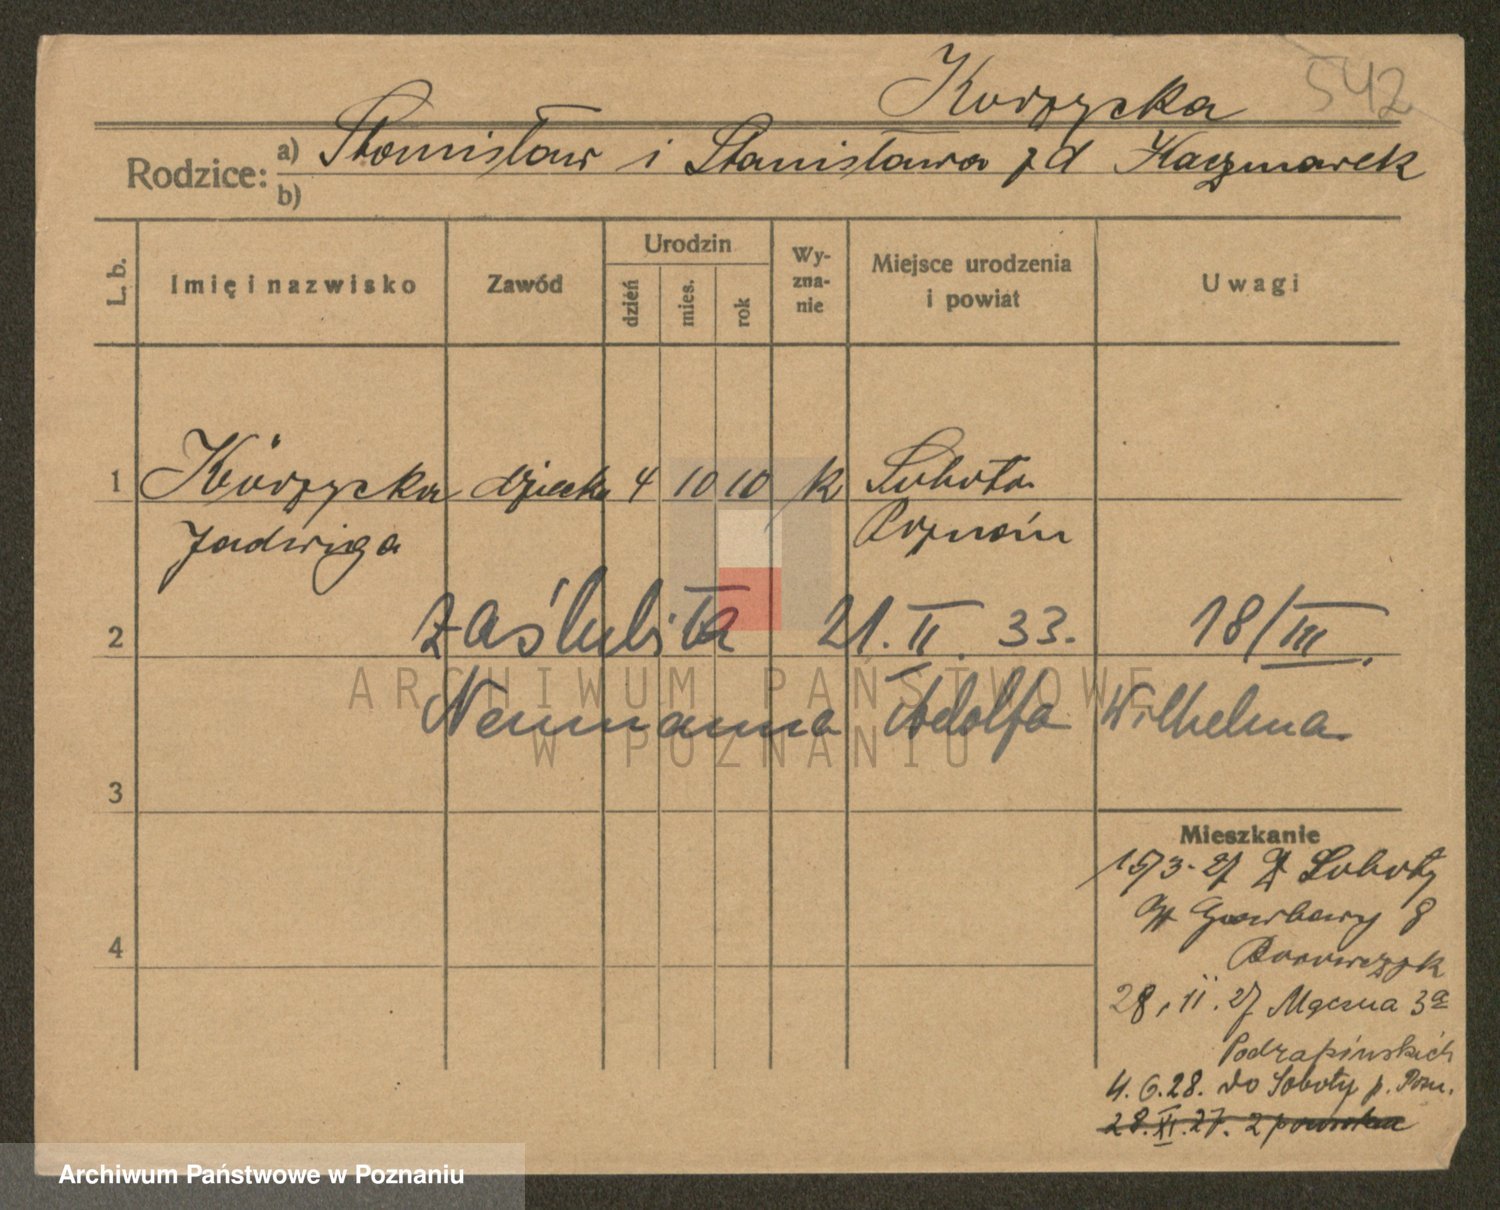 Korzycka 542
Rodzice: a) Stanisław i Stanisława z d Kaczmarek
b)
L. b. Imię i nazwisko Zawód Urodzin dzień mies. rok Wy-zna-nie Miejsce urodzenia i powiat Uwagi
1 Korzycka dziecko 4 10 10 k Sobota
Jadwiga Poznań
2 zaślubiła 21. II. 33. 18/III.
Neumanna Adolfa Wilhelma
ARCHIWUM PAŃSTWOWE
W POZNANIU
3
Mieszkanie
15/3-27 Soboty
Garbary 8
4
28. II. 27 Mączna 3a
4.6.28. do Soboty p. Pozn.
28.XI.27. z powrotem
Archiwum Państwowe w Poznaniu